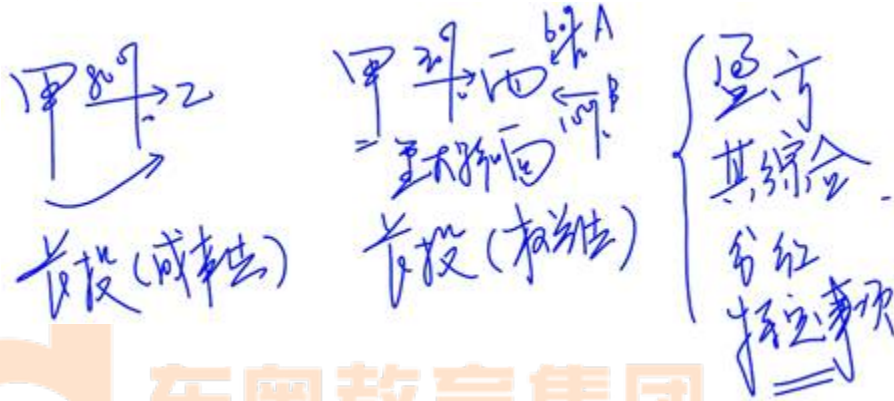 甲 80% → 乙
长投(成本法)
甲 20% → 丙 ← 60% A
← 10% B
重大影响
长投(权益法)
盈亏
其综合
分红
特定事项
东奥教育集团